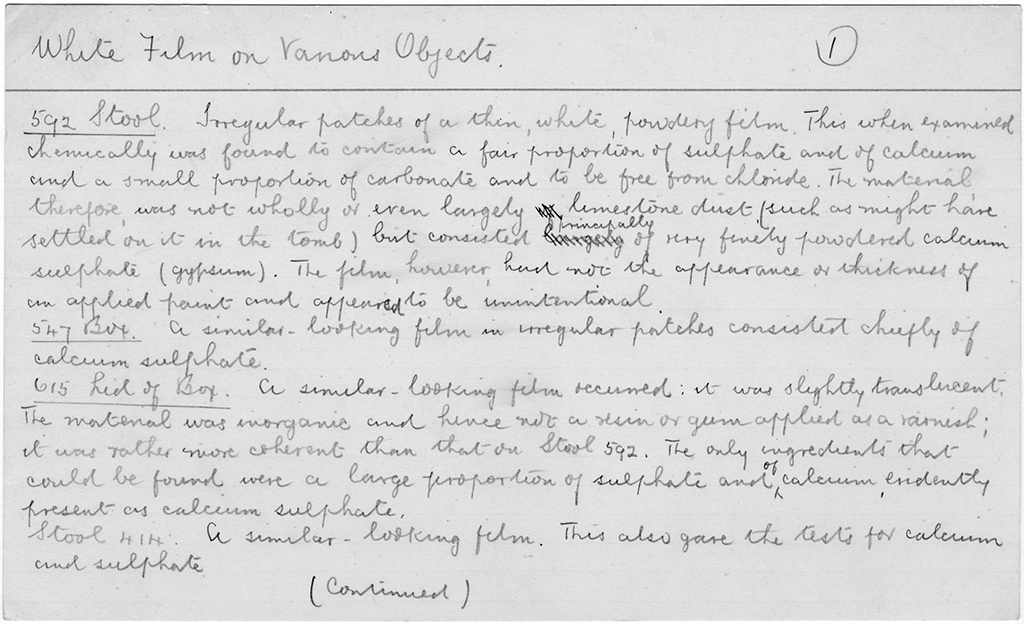 White Film on Various Objects.
1
592 Stool. Irregular patches of a thin, white, powdery film. This when examined
chemically was found to contain a fair proportion of sulphate and of calcium
and a small proportion of carbonate and to be free from chloride. The material
therefore, was not wholly or even largely limestone dust (such as might have
settled on it in the tomb) but consisted principally of very finely powdered calcium
sulphate (gypsum). The film, however, had not the appearance or thickness of
an applied paint and appeared to be unintentional.
547 Box. A similar-looking film in irregular patches consisted chiefly of
calcium sulphate.
615 Lid of Box. A similar-looking film occurred: it was slightly translucent.
The material was inorganic and hence not a resin or gum applied as a varnish;
it was rather more coherent than that on Stool 592. The only ingredients that
could be found were a large proportion of sulphate and of calcium, evidently
present as calcium sulphate.
Stool 414. A similar-looking film. This also gave the tests for calcium
and sulphate
(Continued)